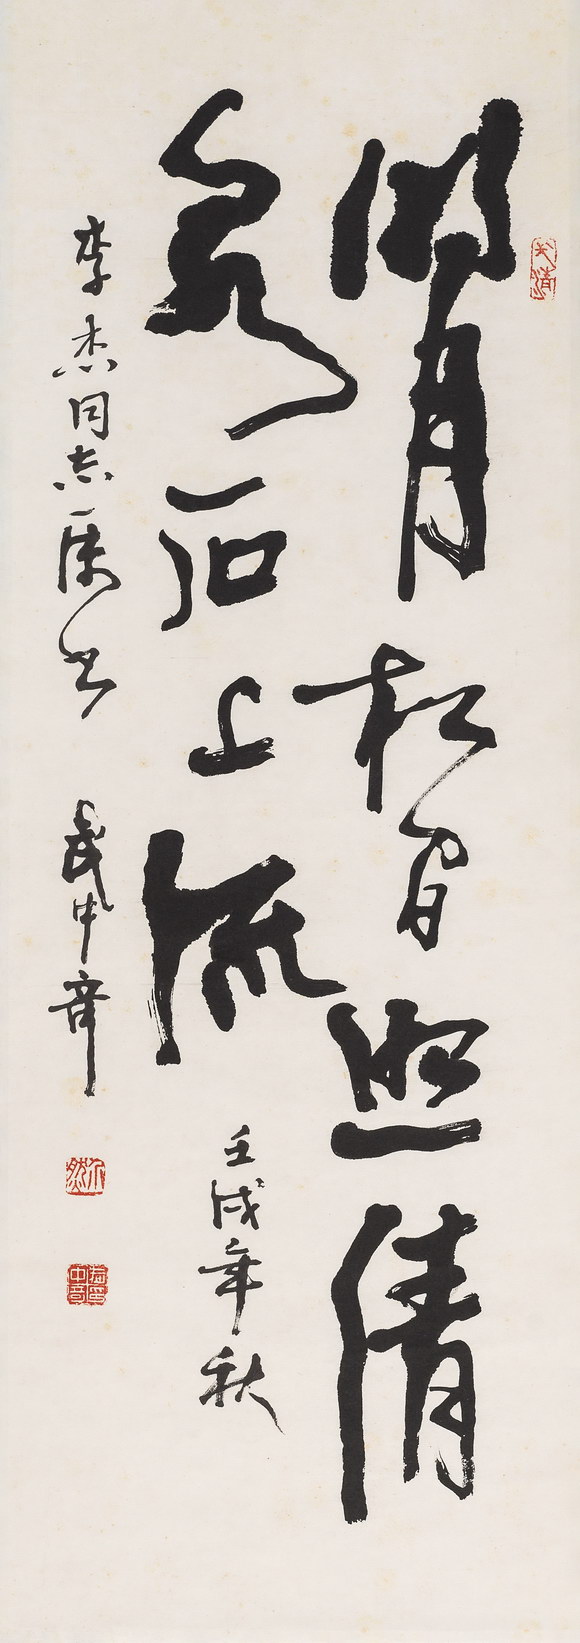 明月松间照清
泉石上流
壬戌年秋
李杰同志属书
武中奇